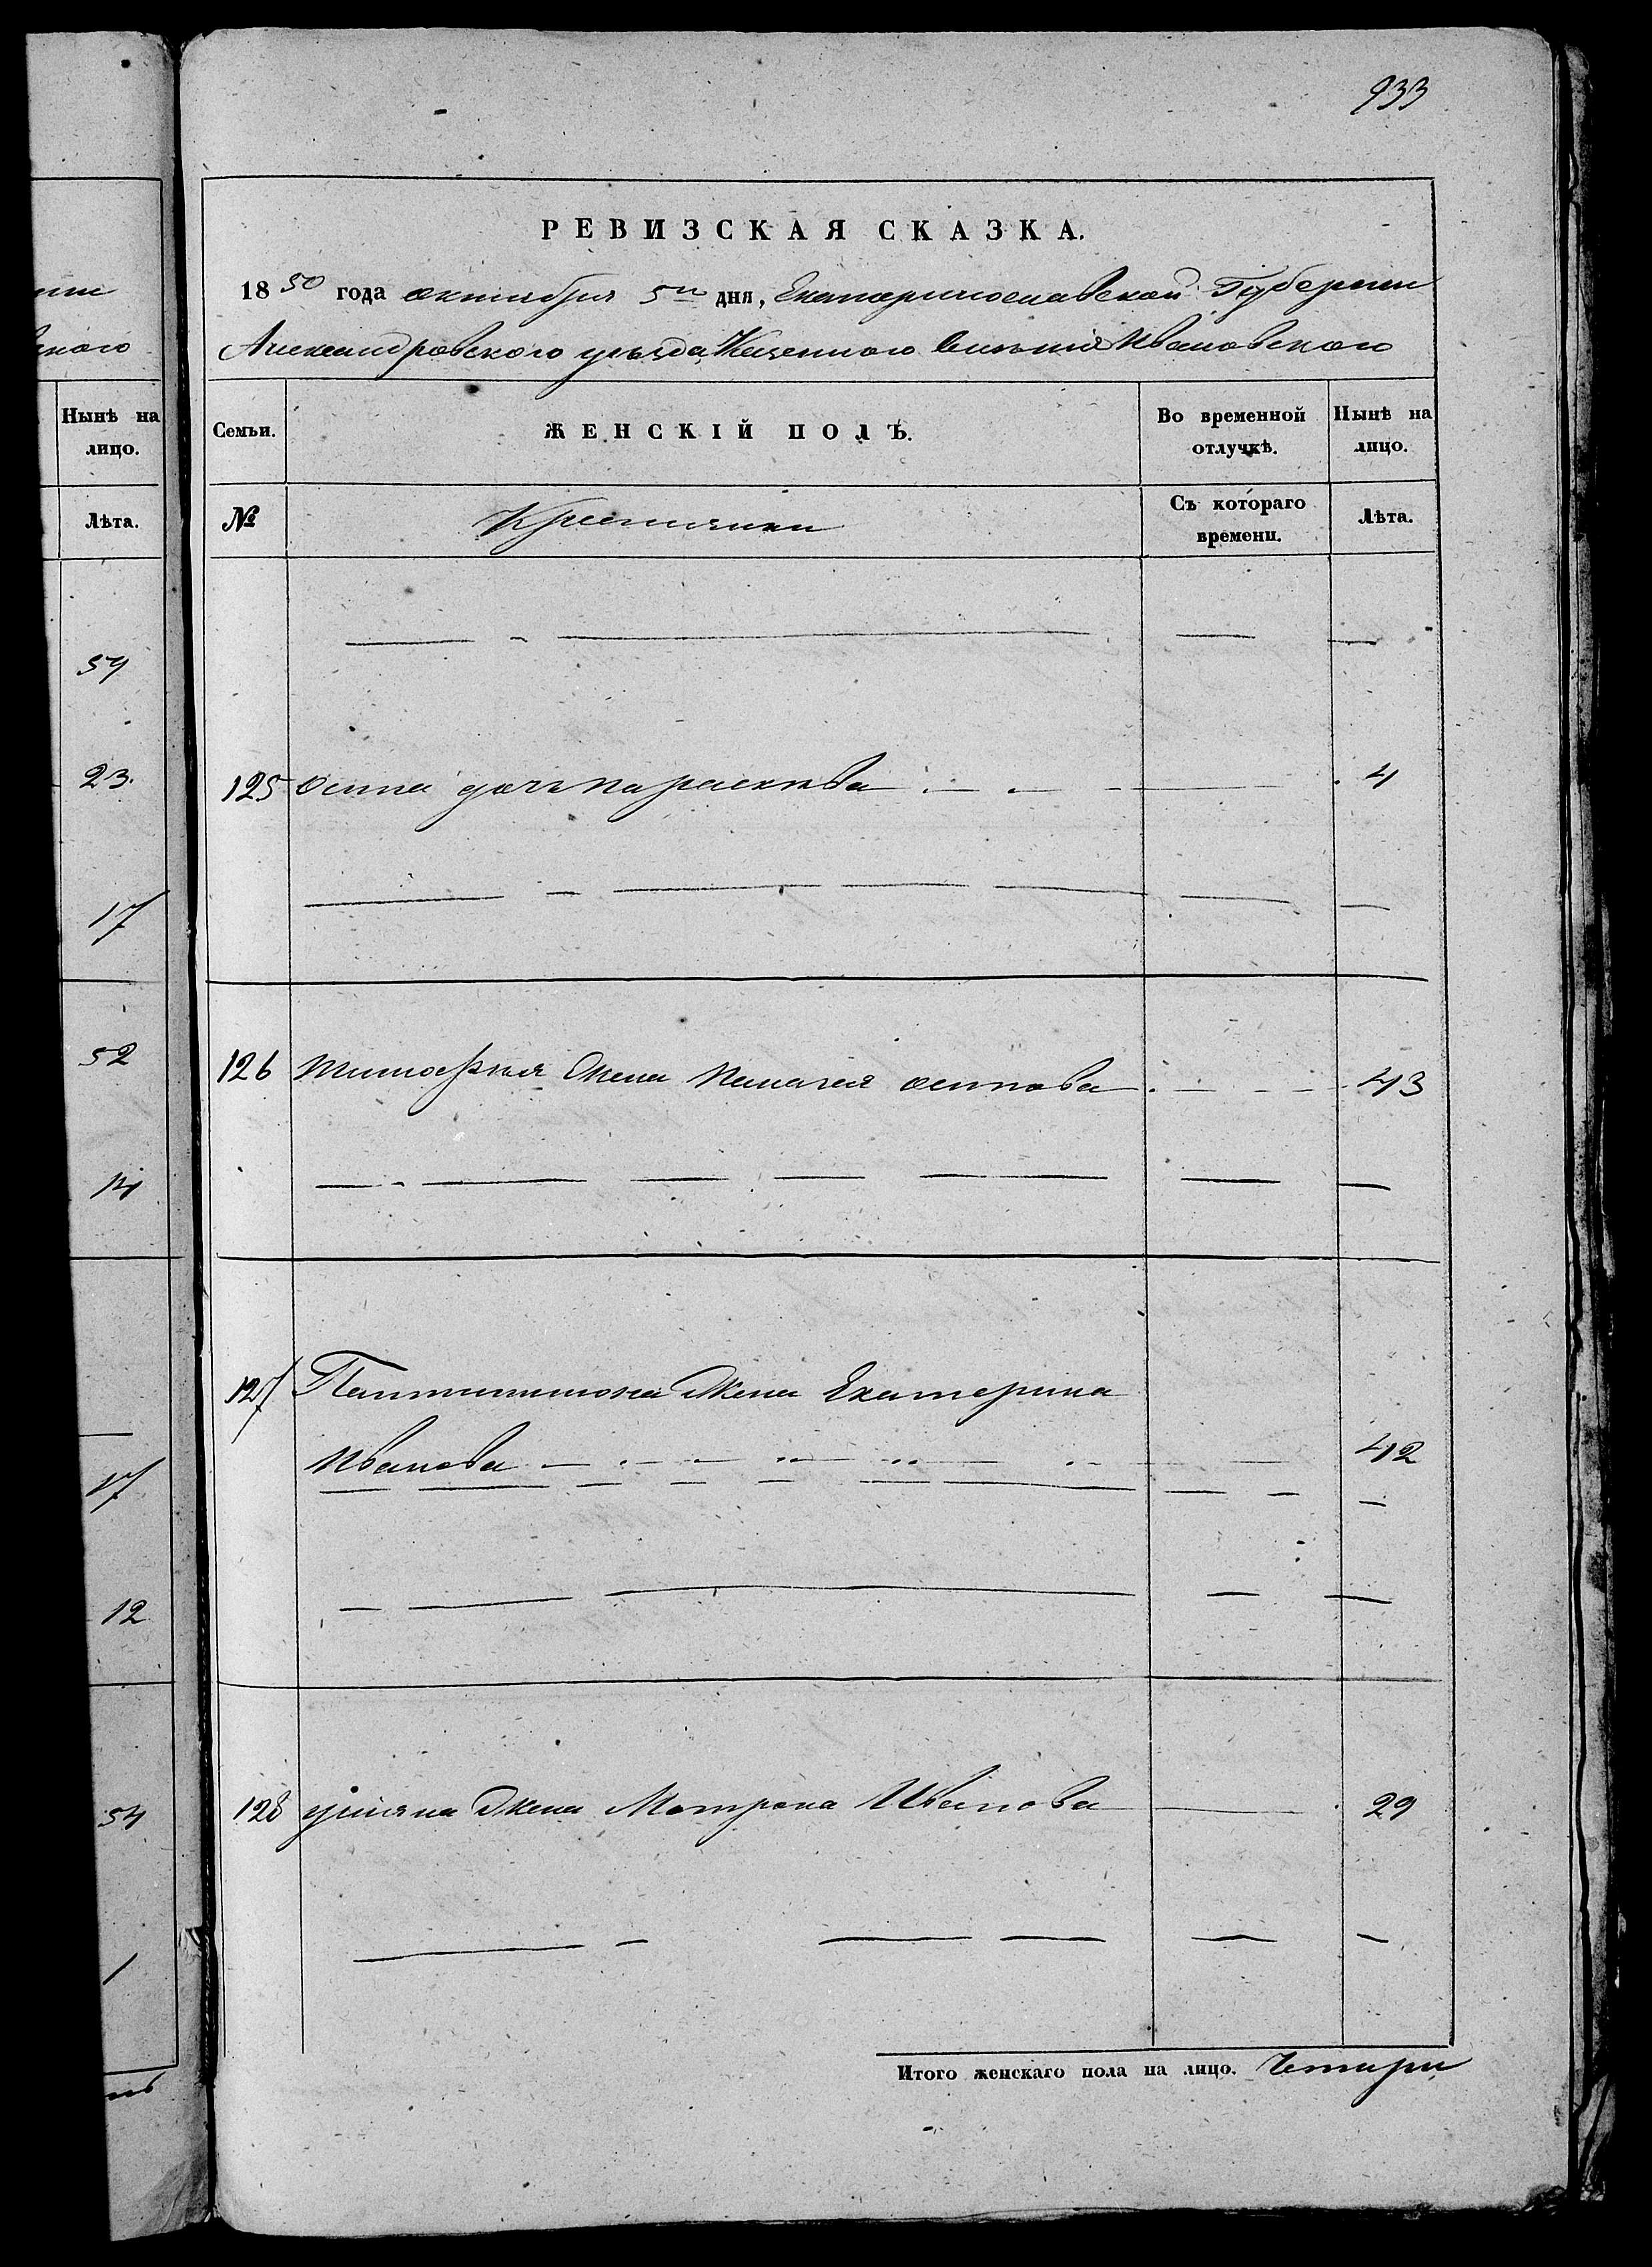 933
РЕВИЗСКАЯ СКАЗКА.
1850 года октября 5го дня, Екатеринославской Губернии
Александровского уезда Казенного Селения Ивановского
Семьи.
ЖЕНСКІЙ ПОЛЪ.
Во временной отлучкѣ.
Нынѣ на лицо.
№
Крестьянки
Съ котораго времени.
Лѣта.
125 Осипа дочь Параскева 4
126 Тимофея жена Пелагея Осипова 43
127 жена Екатерина
Иванова 42
128 жена Матрона Иванова 29
Итого женскаго пола на лицо. Четыри
Нынѣ на лицо.
Лѣта.
54
23.
17
52
14
17
12
54
1